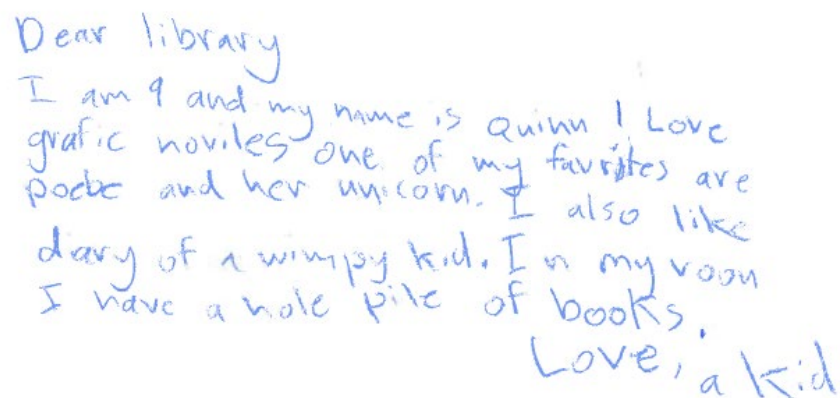 Dear library
I am 9 and my name is Quinn I Love
grafic noviles one of my favrites are
poebe and her unicorn. I also like
diary of a wimpy kid. In my room
I have a hole pile of books.
Love, a kid